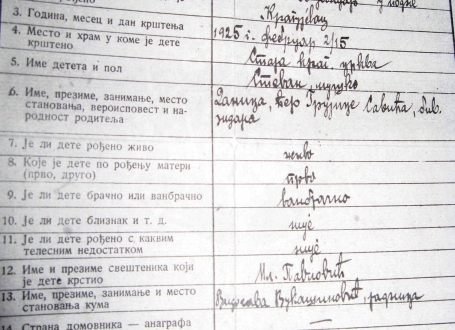 Крагујевац
3. Година, месец и дан крштења 1925 г. фебруар 2/15
4. Место и храм у коме је дете
крштено Стара Краг. црква
5. Име детета и пол Стеван, мушко
6. Име, презиме, занимање, место
становања, вероисповест и на-
родност родитеља
Даница, кћер Грујице Савића, бив.
зидара
7. Је ли дете рођено живо живо
8. Које је дете по рођењу матери
(прво, друго) прво
9. Је ли дете брачно или ванбрачно ванбрачно
10. Је ли дете близнак и т. д. није
11. Је ли дете рођено с каквим
телесним недостатком није
12. Име и презиме свештеника који
је дете крстио Мл. Павловић
13. Име, презиме, занимање и место
становања кума Видосава Вукашиновић, радница
14. Страна домовника — анаграфа